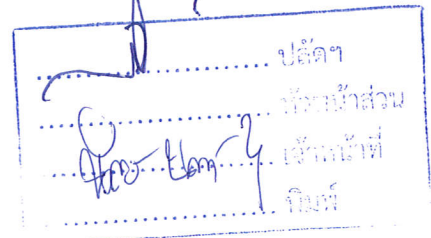 .................................... ปลัดฯ
.................................... หัวหน้าส่วน
.................................... เจ้าหน้าที่
.................................... พิมพ์